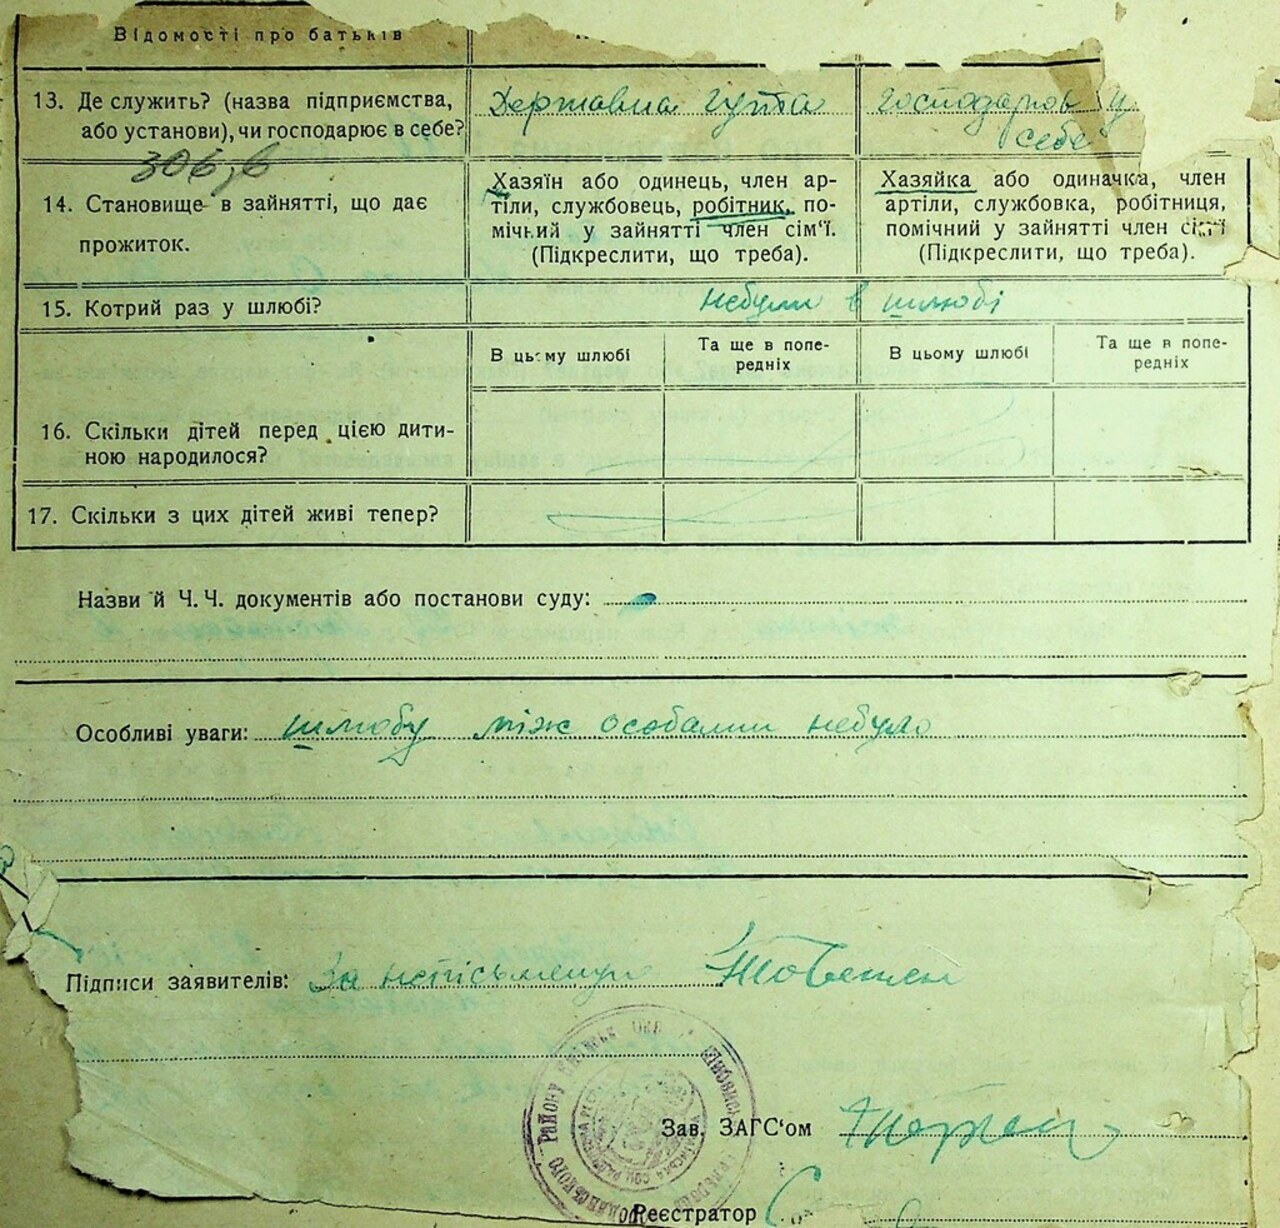 Відомості про батьків
13. Де служить? (назва підприємства, або установи), чи господарює в себе?
Державна гута
господарює у себе
306,6
14. Становище в зайнятті, що дає прожиток.
Хазяїн або одинець, член ар-
тіли, службовець, робітник, по-
мічний у зайнятті член сім'ї.
(Підкреслити, що треба).
Хазяйка або одиначка, член
артіли, службовка, робітниця,
помічний у зайнятті член сім'ї
(Підкреслити, що треба).
15. Котрий раз у шлюбі?
небули в шлюбі
В цьому шлюбі
Та ще в попе-
редніх
В цьому шлюбі
Та ще в попе-
редніх
16. Скільки дітей перед цією дити-
ною народилося?
17. Скільки з цих дітей живі тепер?
Назви й Ч. Ч. документів або постанови суду:
Особливі уваги: шлюбу між особами небуло
Підписи заявителів: За неписьменну
РАЙОНУ
Зав. ЗАГС'ом
Реєстратор